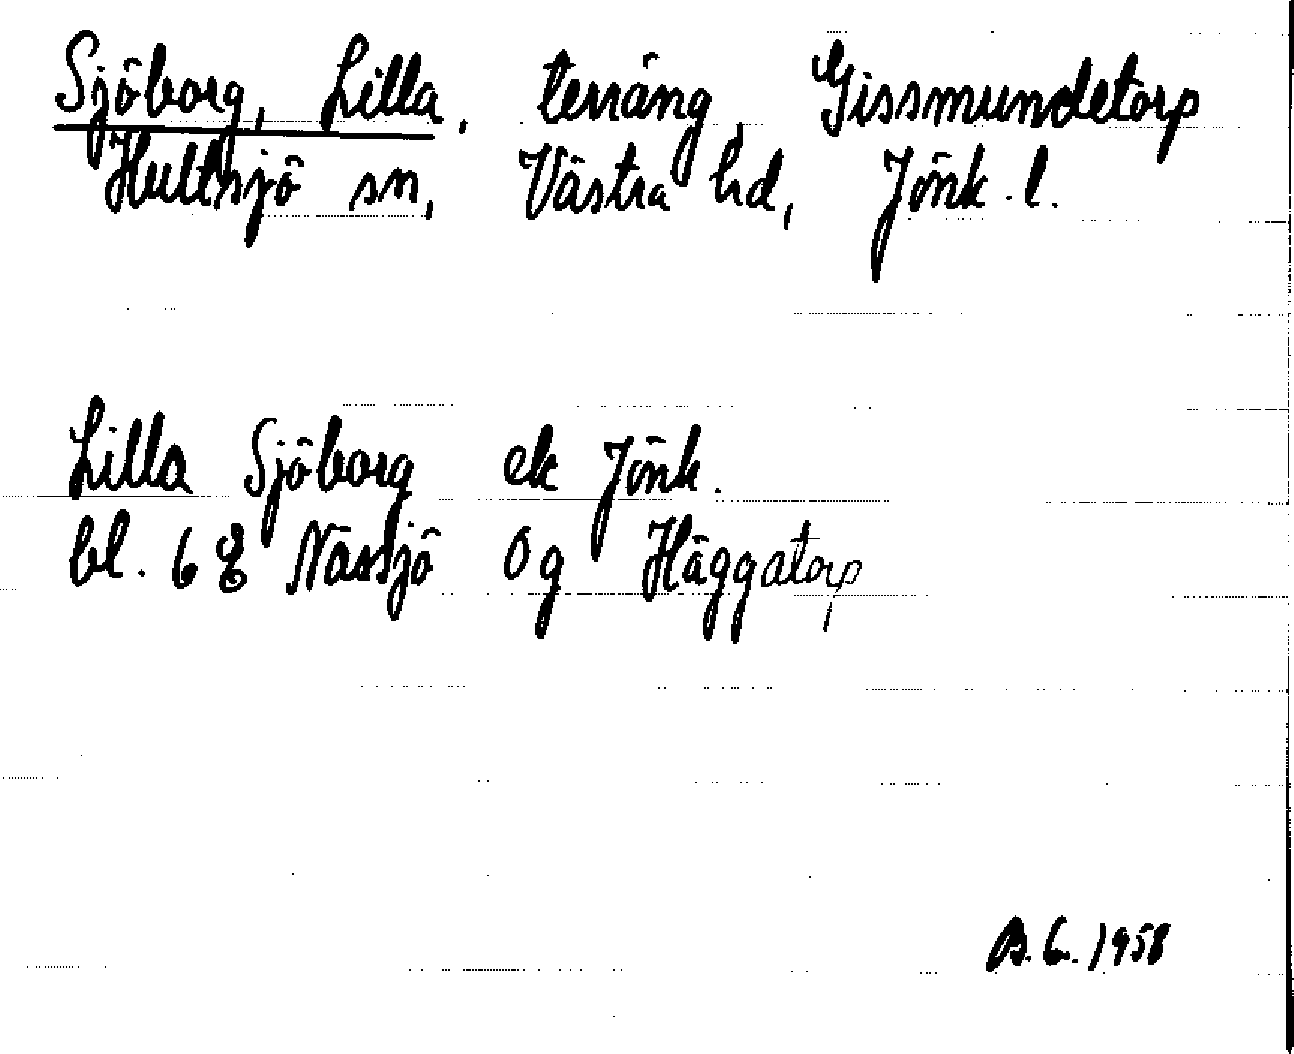 Sjöborg, Lilla, terräng, Gissmundetorp
Hultsjö sn, Västra hd, Jönk. l.
Lilla Sjöborg ek Jönk.
bl. 6 E Nässjö Og Häggatorp
B. G. 1958